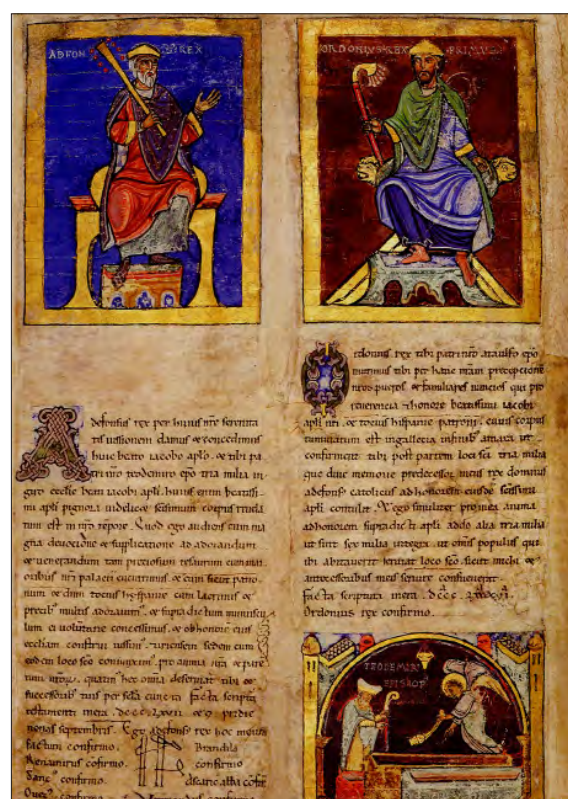 ADFON S: REX
defonsus rex per huius nr̄e serenita
tis iussionem damus & concedimus
huic beato iacobo aplo. & tibi pa
tri nr̄o teodemiro ep̄o tria milia in
giro ecclie beati iacobi apli. huius enim beatissi
mi apli pignora uidelicet scissimum corpus reuela
tum est in nr̄o tepore. Quod ego audiens cum ma
gna deuocione & supplicatione ad adorandum
& uenerandum tam preciosum tesaurum cum maí
oribus nr̄i palacii cucurrimus. & eum sicut patro
num & dnm totius hyspanie cum lacrimis &
precib; multis adorauim. & supra dictum munuscu
lum ei uoluntarie concessimus. & ob honore eius
eccliam construi iussim.
eodem loco sco coniunxim. pro anima mea & pare
tum meorum. quatin hec omnia deseruiat tibi &
successorib; tuis per scla cuncta facta scriptu
testamenti in era. dccc. lxvii & predie
nonas septembris. Ego adefons rex hoc meum
factum confirmo. Brandila
Ranemirus cofirmo. confirmo
Sanc confirmo. Ascaric abba cofir
confirmo.
ORDONIUS: REX PRIMUS
rdonius rex tibi patri nr̄o ataulfo ep̄o
mittimus tibi per hanc nr̄am precepcione
nros pueros & familiares nuncios qui pro
reuerencia & honore beatissimi iacobi
apli nr̄i. & tocius hispanie patroni. cuius corpus
tumulatum est in gallecia infinib; amaea ut
confirment tibi post partem loci sci tria milia
que diue memorie predecessor meus rex domnus
adefons catolicus ad honorem eiusde scissimi
apli contulit. & ego similiter pro mea anima
ad honorem supradicti apli addo alia tria milia
ut sint sex milia integra. ut omis populus qui
ibi abitauerit seruiat loco sco. sicut michi &
antecessoribus meis seruire consueuerat.
facta scriptura in era. dccc.
Ordonius rex confirmo.
TEODEMIR
EPISCOP